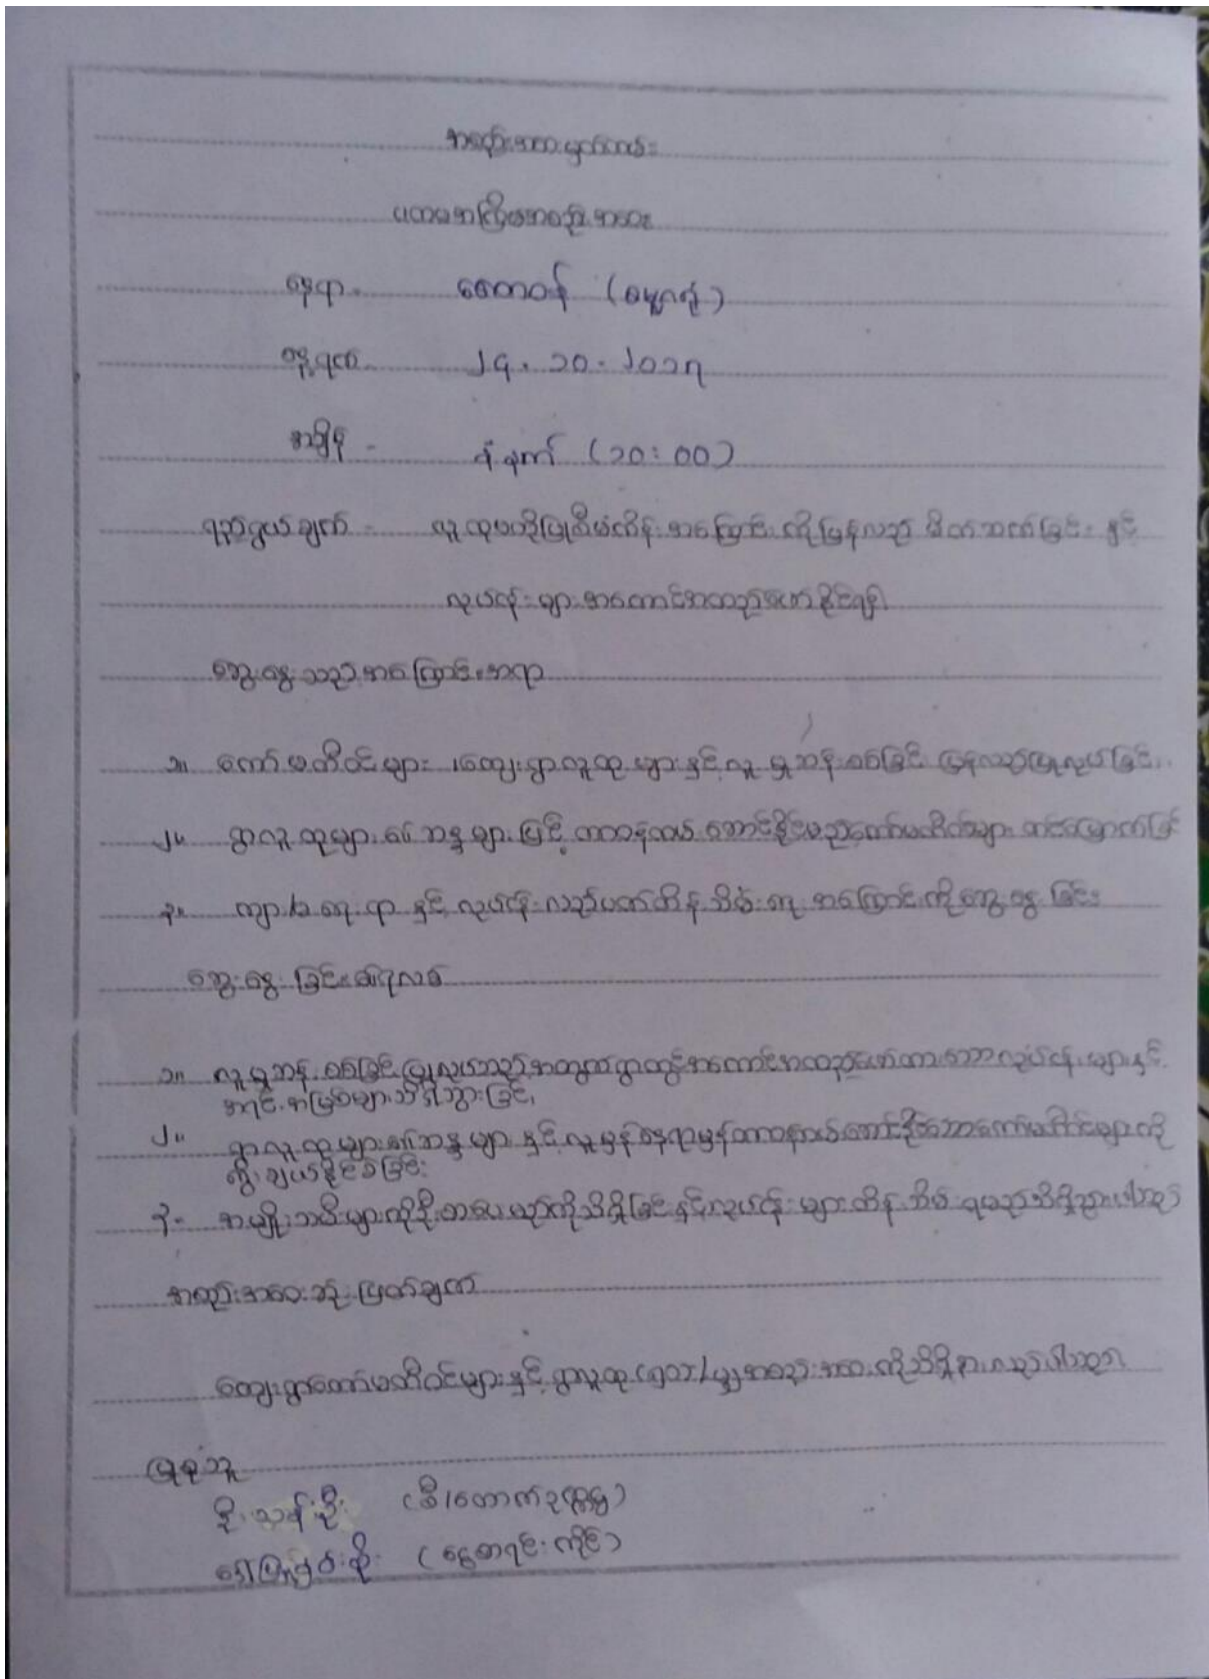 အစည်းအဝေးမှတ်တမ်း
ပထမအကြိမ်အစည်းအဝေး
နေရာ - ဇေတဝန် (ဓမ္မာရုံ)
နေ့ရက် - ၂၄.၁၀.၂၀၁၇
အချိန် - နံနက် (၁၀:၀၀)
ရည်ရွယ်ချက် - လူထုဗဟိုပြုစီမံကိန်းအကြောင်းကိုပြန်လည်မိတ်ဆက်ခြင်းနှင့်
လုပ်ငန်းများအကောင်အထည်ဖော်နိုင်ရန်
ဆွေးနွေးသည့်အကြောင်းအရာ
၁။ ကော်မတီဝင်များ၊ ကျေးရွာလူထုများနှင့်လူမှုဆန်းစစ်ခြင်းပြန်လည်ပြုလုပ်ခြင်း
၂။ ရွာလူထုများ၏ဆန္ဒများဖြင့်တာဝန်ထမ်းဆောင်နိုင်မည့်ကော်မတီဝင်များတင်မြှောက်ခြင်း
၃။ ကျား/မရေးရာနှင့်လုပ်ငန်းလည်ပတ်ထိန်းသိမ်းရေးအကြောင်းကိုဆွေးနွေးခြင်း
ဆွေးနွေးခြင်း၏ရလဒ်
၁။ လူမှုဆန်းစစ်ခြင်းပြုလုပ်သည့်အတွက်ရွာတွင်အကောင်အထည်ဖော်ထားသောလုပ်ငန်းများနှင့်
အရင်းအမြစ်များသိရှိသွားခြင်း
၂။ ရွာလူထုများ၏ဆန္ဒများနှင့်လူမှန်နေရာမှန်တာဝန်ထမ်းဆောင်နိုင်သောကော်မတီဝင်များကို
ရွေးချယ်နိုင်ခဲ့ခြင်း
၃။ အမျိုးသမီးများကိုဦးစားပေးမည်ကိုသိရှိခြင်းနှင့်လုပ်ငန်းများထိန်းသိမ်းရမည်သိရှိသွားပါသည်
အစည်းအဝေးဆုံးဖြတ်ချက်
ကျေးရွာကော်မတီဝင်များနှင့်ရွာလူထု အစည်းအဝေးကိုသိရှိနားလည်ပါသည်။
ပြုစုသူ
ဦးသန်းဦး (စီ/ထောက်ဥက္ကဋ္ဌ)
(ငွေစာရင်းကိုင်)